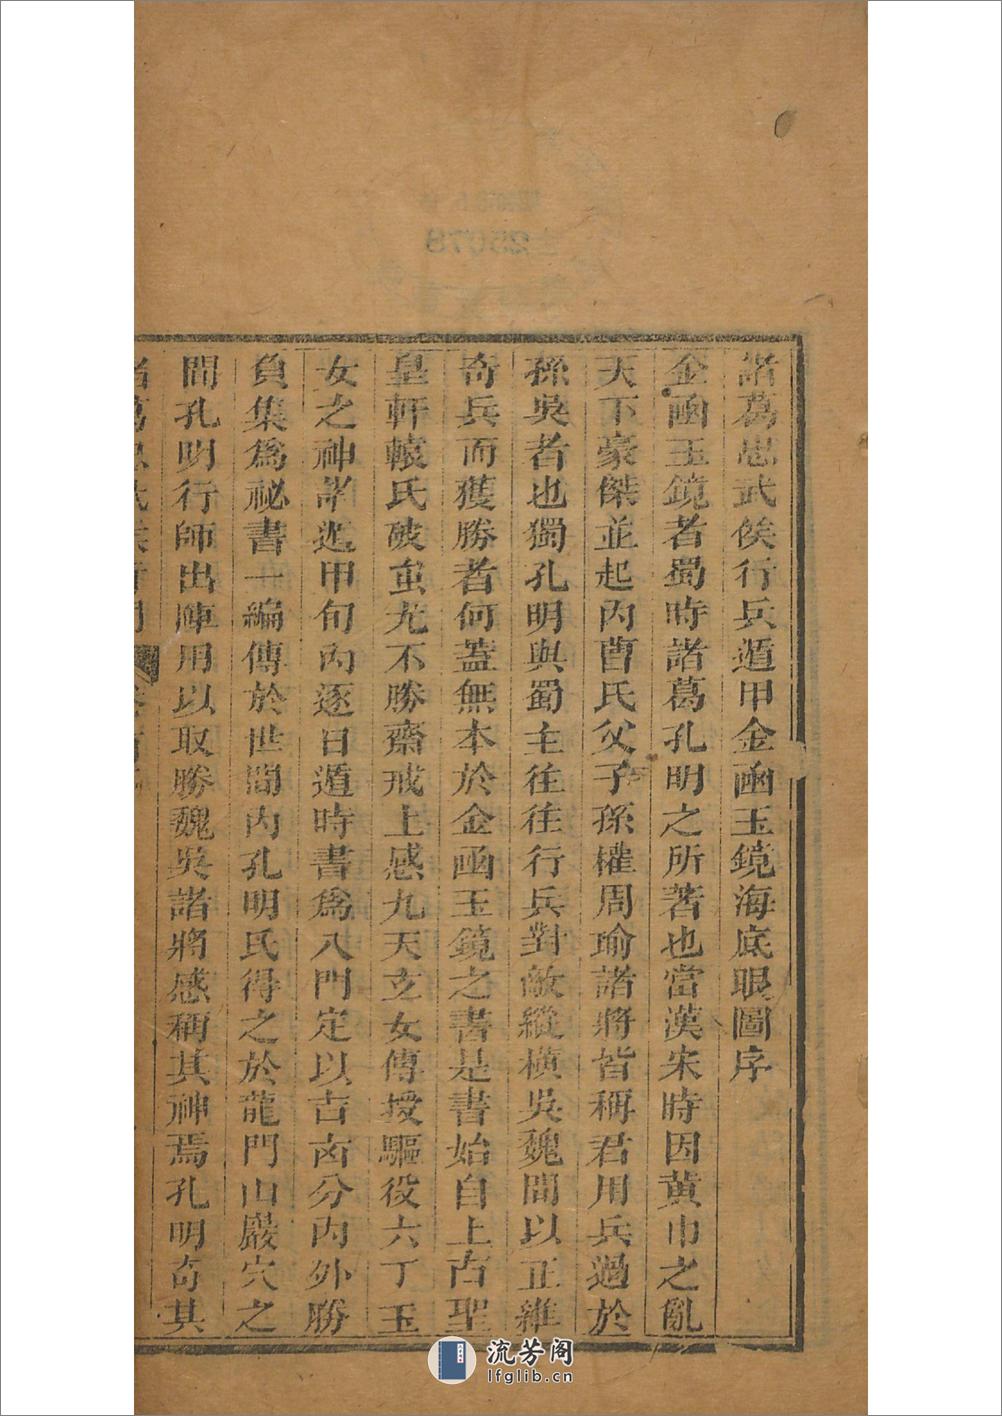 諸葛忠武侯行兵遁甲金函玉鏡海底眼圖序
金函玉鏡者蜀時諸葛孔明之所著也當漢末時因黃巾之亂
天下豪傑並起內曹氏父子孫權周瑜諸將皆稱君用兵過於
孫吳者也獨孔明與蜀主往往行兵對敵縱橫吳魏間以正維
奇兵而獲勝者何蓋無本於金函玉鏡之書是書始自上古聖
皇軒轅氏破蚩尤不勝齋戒上感九天玄女傳授驅役六丁玉
女之神諱遁甲旬內逐日遁時書為八門定以吉凶分內外勝
負集為祕書一編傳於世間內孔明氏得之於龍門山巖穴之
間孔明行師出陣用以取勝魏吳諸將感稱其神焉孔明奇其
25078
流芳阁
lfglib.cn